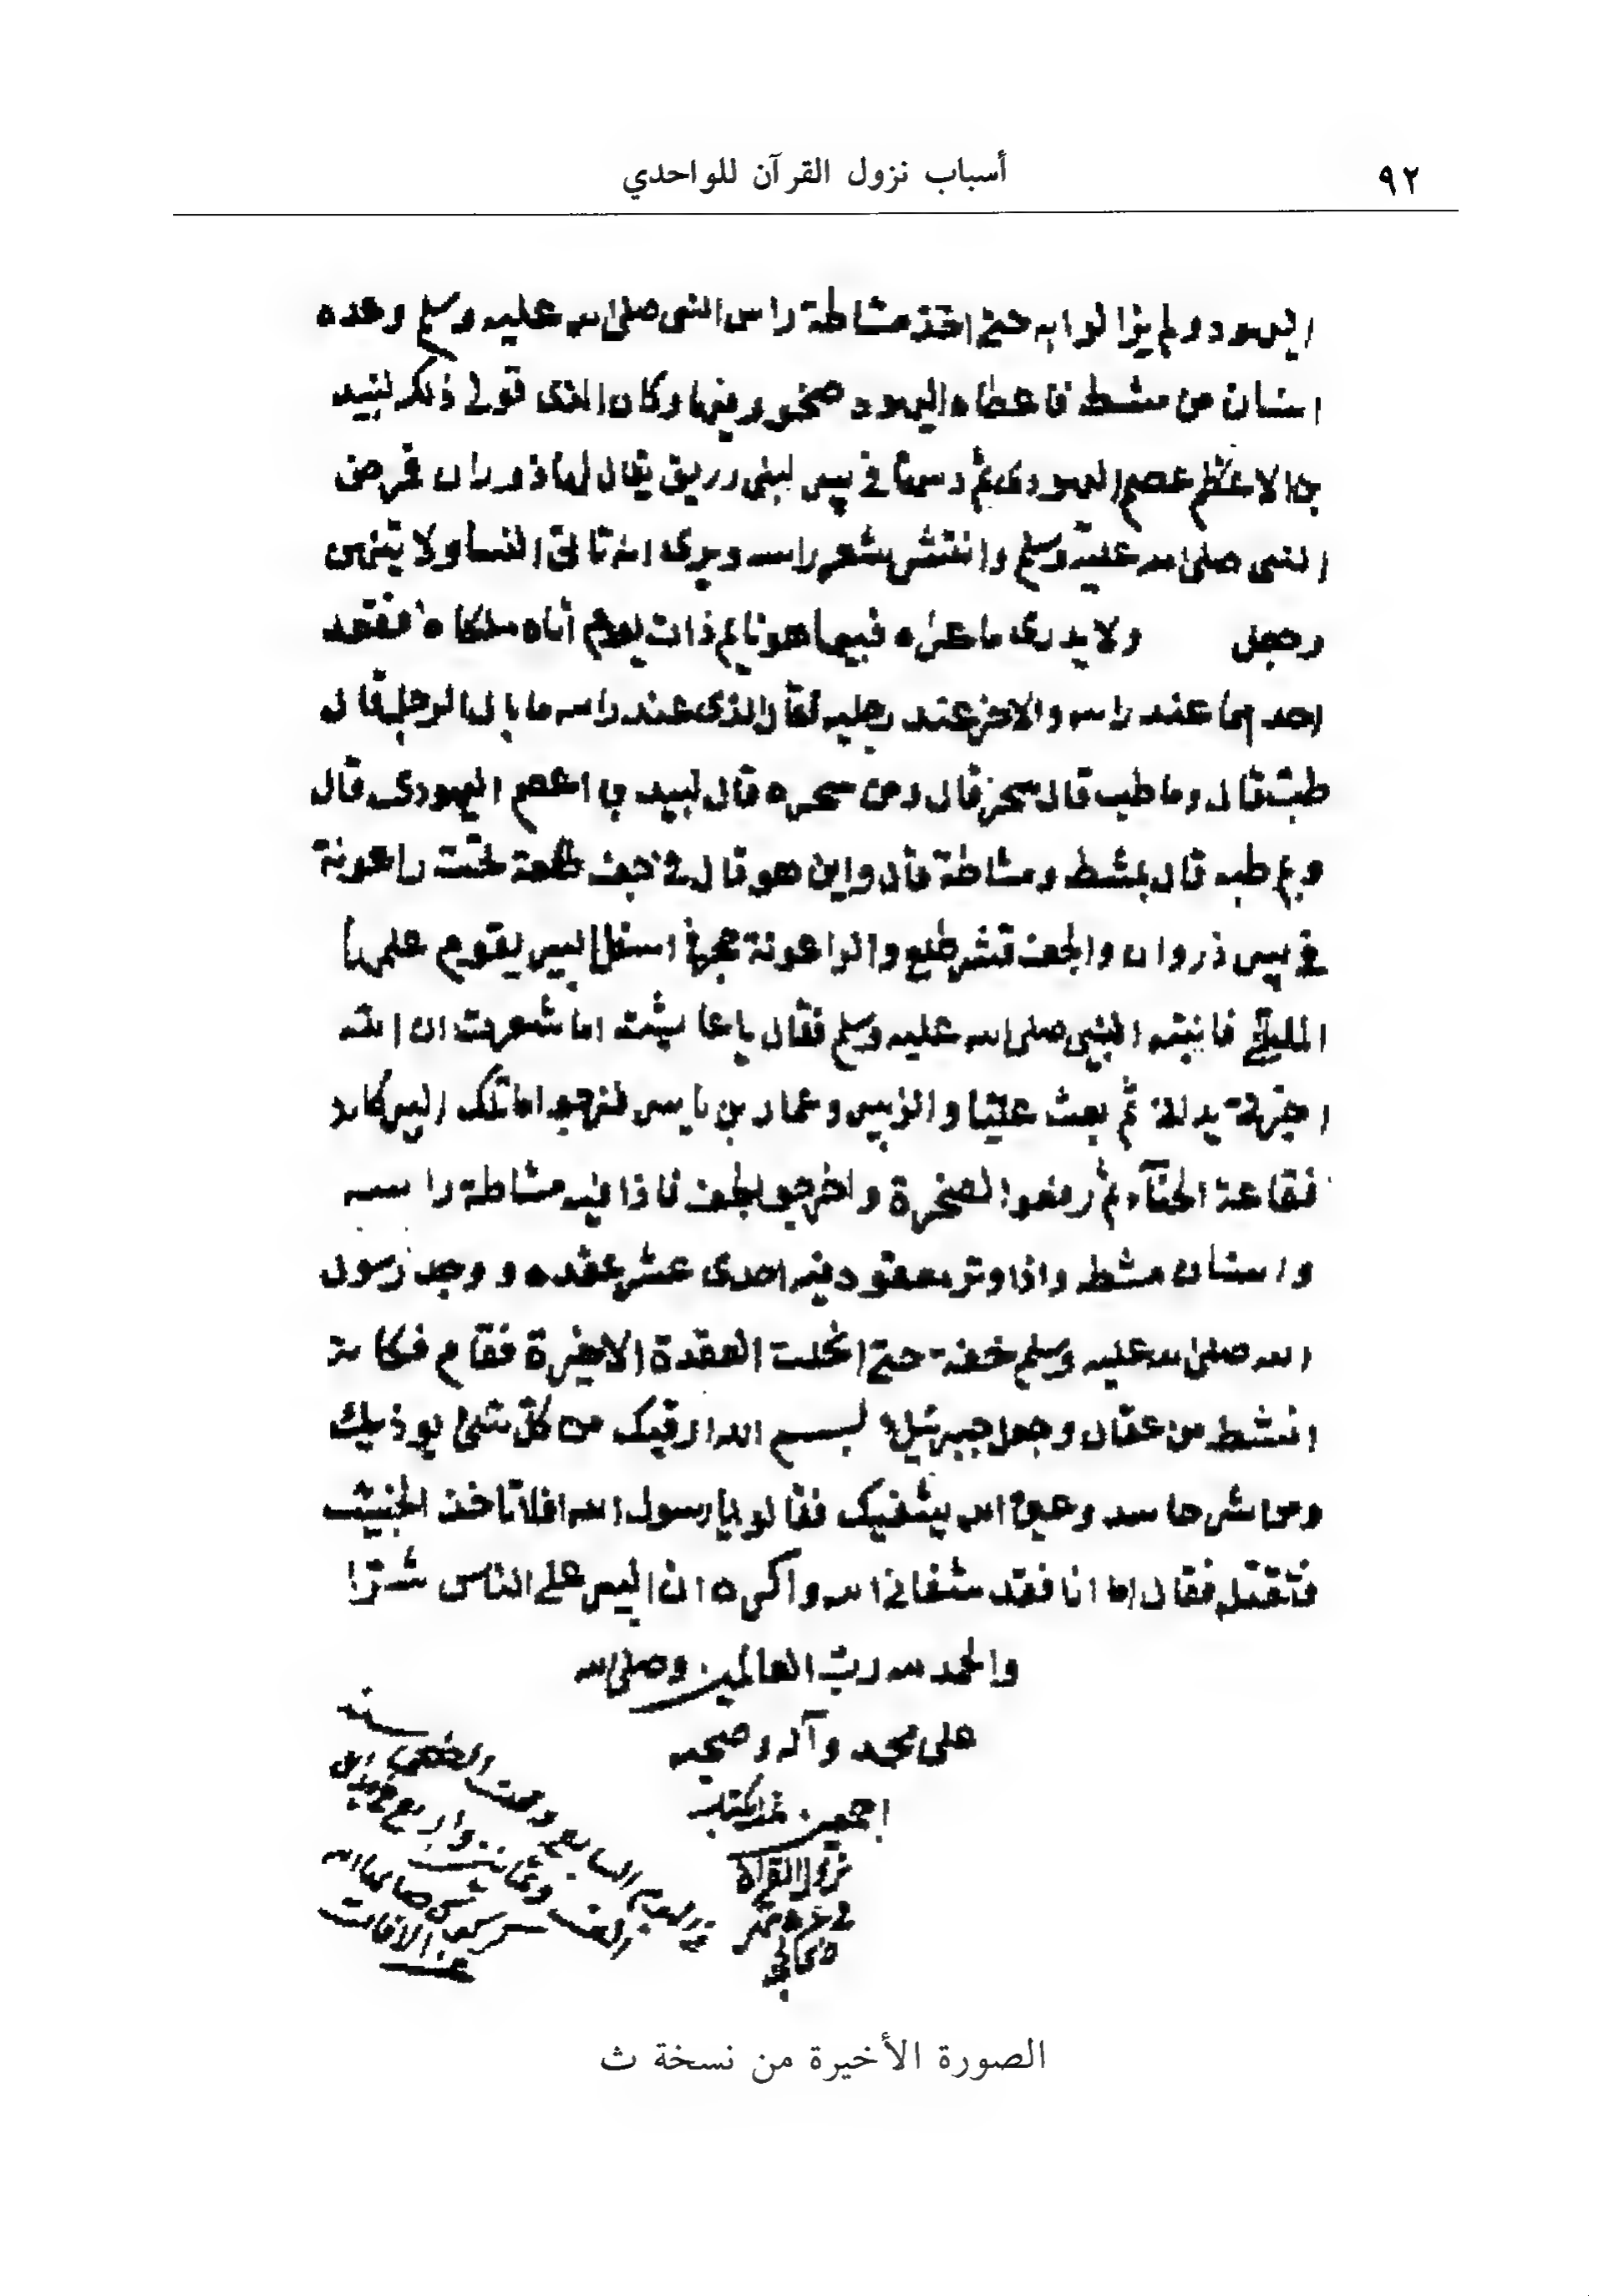 ٩٢
أسباب نزول القرآن للواحدي
اليهود ولم يزالوا به حتى اخذ مشاطة راس النبى صلى الله عليه وسلم وعده
اسنان من مشط فاعطاه اليهود فيها وكان الذى تولى ذلك لبيد
بن الاعصم اليهودى ثم دسها فى بير لبنى زريق يقال لها ذوران فمرض
النبى صلى الله عليه وسلم وانتثر شعر راسه ويرى انه تاتى النسا ولا
وجعل ولا يدرى ما عراه فبيما هو نايم ذات يوم أتاه ملكاه فقعد
احدهما عند راسه والاخر عند رجليه فقال الذى عند راسه ما بال الرجل قال
طب قال وما طب قال سحر قال ومن سحره قال لبيد بن اعصم اليهودى قال
وبم طبه قال بمشط ومشاطة قال واين هو قال فى جف طلعة تحت راعونة
فى بير ذروان والجف قشر طلع والراعونة حجر فى اسفل البير يقوم عليها
فانبته النبى صلى الله عليه وسلم فقال يا عايشة اما شعرت ان الله
ثم بعث عليا والزبير وعمار بن ياسر فنزحوا ما تلك البير كانه
نقاعة الحنآء ثم رفعوا الصخرة واخرجوا الجف فاذا فيه مشاطة راسه
واسنان مشط واذا وتر معقود فيه احدى عشر عقده ووجد رسول
الله صلى الله عليه وسلم خفة حتى انحلت العقدة الاخيرة فقام فكانما
انشط من عقال وجعل جبرئيل بسم الله ارقيك من كل شئ يوذيك
ومن شر حاسد وعين الله يشفيك فقالو يا رسول الله افلا تاخذ الخبيث
فتقتل فقال اما انا فقد شفانى الله واكره ان اثير على الناس شرا
والحمد لله رب العالمين وصلى الله
على محمد وآله وصحبه
اجمعين
نزول القرآن
الصورة الأخيرة من نسخة ث